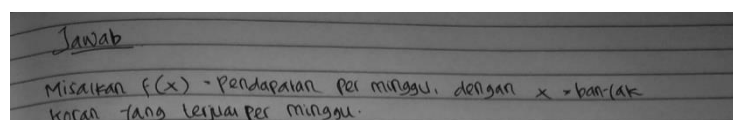 Jawab
Misalkan f(x) = Pendapatan per minggu, dengan x = banyak
koran yang terjual per minggu.